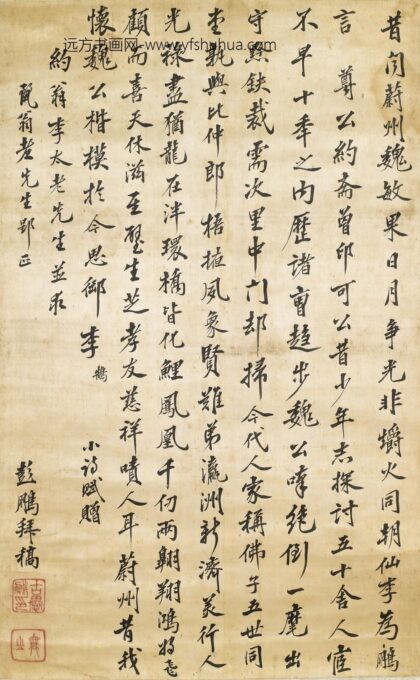 远方书画网：www.yfshuhua.com
昔闻蔚州魏敏果日月争光非爝火同朝仙李為鵬
言 尊公約齋曾印可公昔少年志探討五十舍人官
不早十年之内歷諸曹趨步魏公嗟絕倒一麾出
守裁需次里中门却掃今代人家稱佛子五世同
堂孰與比仲郎梧掖風象賢難弟瀛洲新濟美行人
光祿盡猶龍在泮環橋皆化鯉鳳凰千仞兩翱翔鴻
顧而喜天休滋至生芝孝友慈祥嘖人耳蔚州昔我
懷魏公楷模於今思御李 小詩賦贈
約翁李太老先生並求
翁老先生郢正
彭鵬拜稿